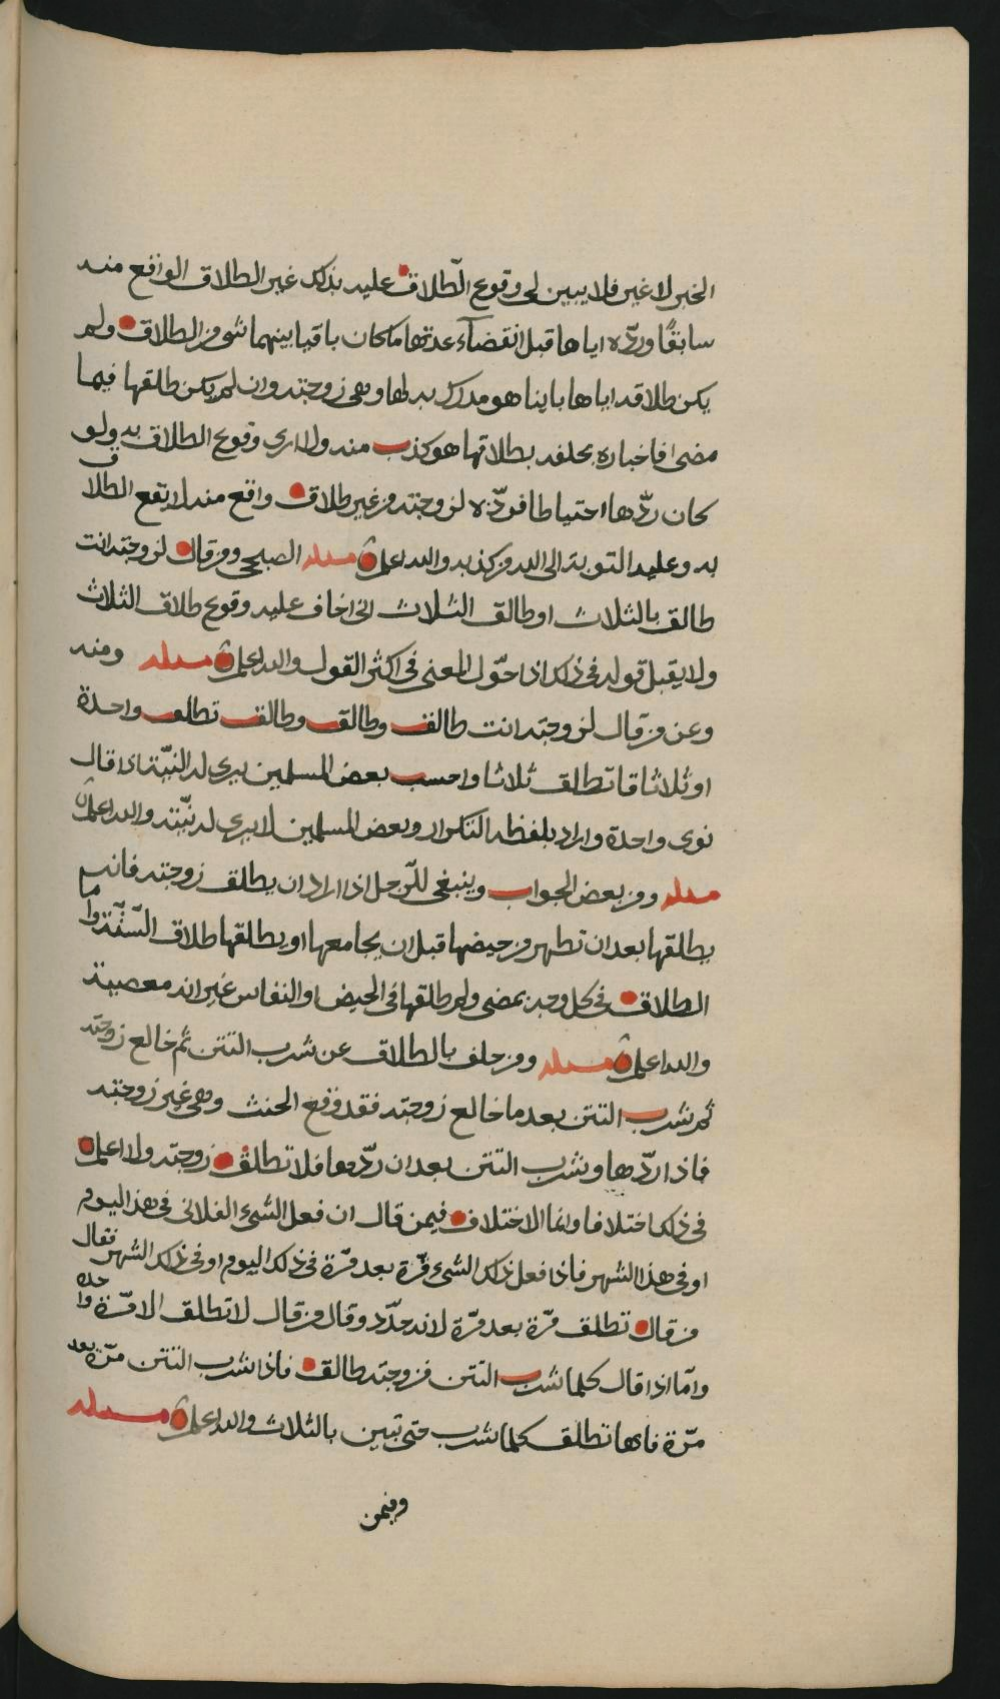 الخبر لا غير فلا يبين لي وقوع الطلاق عليه بذلك غير الطلاق الواقع منه
سابقًا وردّه اياها قبل انقضآء عدتها ما كان باقيا بينهما شي من الطلاق ولم
يكن طلاقه اياها باينا هو مدرك بدلها وهي زوجته وان لم يكن طلقها فيما
مضى فاخباره بحلفه بطلاقها هو كذب منه ولا ارى وقوع الطلاق به ولو
كان ردّها احتياطا فردّه لزوجته من غير طلاق واقع منه لا يقع الطلاق
به وعليه التوبة الى الله من كذبه والله اعلم مسئلة الصبحي ومن قال لزوجته انت
طالق بالثلاث او طالق الثلاث اني اخاف عليه وقوع طلاق الثلاث
ولا يقبل قوله في ذلك اذا حوّل المعنى في اكثر القول والله اعلم مسئلة ومنه
وعن من قال لزوجته انت طالق وطالق وطالق تطلق واحدة
او ثلاثا قا تطلق ثلاثا واحسب بعض المسلمين يرى له النيّة اذا قال
نوى واحدة واراد بلفظه التكرار وبعض المسلمين لا يرى له نيّته والله اعلم
مسئلة ومن بعض الجواب وينبغي للرّجل اذا اراد ان يطلق زوجته فانه
يطلقها بعد ان تطهر من حيضها قبل ان يجامعها او يطلقها طلاق السّنّة واما
الطلاق في كل وجه يمضى ولو طلقها في الحيض او النفاس غير انه معصية
والله اعلم مسئلة ومن حلف بالطلاق عن شرب التتن ثم خالع زوجته
ثم شرب التتن بعد ما خالع زوجته فقد وقع الحنث وهي غير زوجته
فاذا ردّها وشرب التتن بعد ان ردّها فلا تطلق زوجته ولا اعلم
في ذلك اختلافا وانما الاختلاف فيمن قال ان فعل الشيء الفلاني في هذا اليوم
او في هذا الشهر فاذا فعل ذلك الشيء مرّة بعد مرّة في ذلك اليوم او في ذلك الشهر فقال
من قال تطلق مرّة بعد مرّة لانه حدّد وقال من قال لا تطلق الا مرّة واحدة
وامّا اذا قال كلما شرب التتن فزوجته طالق فاذا شرب التتن مرّة بعد
مرّة فانها تطلق كلما شرب حتى تبين بالثلاث والله اعلم مسئلة
وفيمن